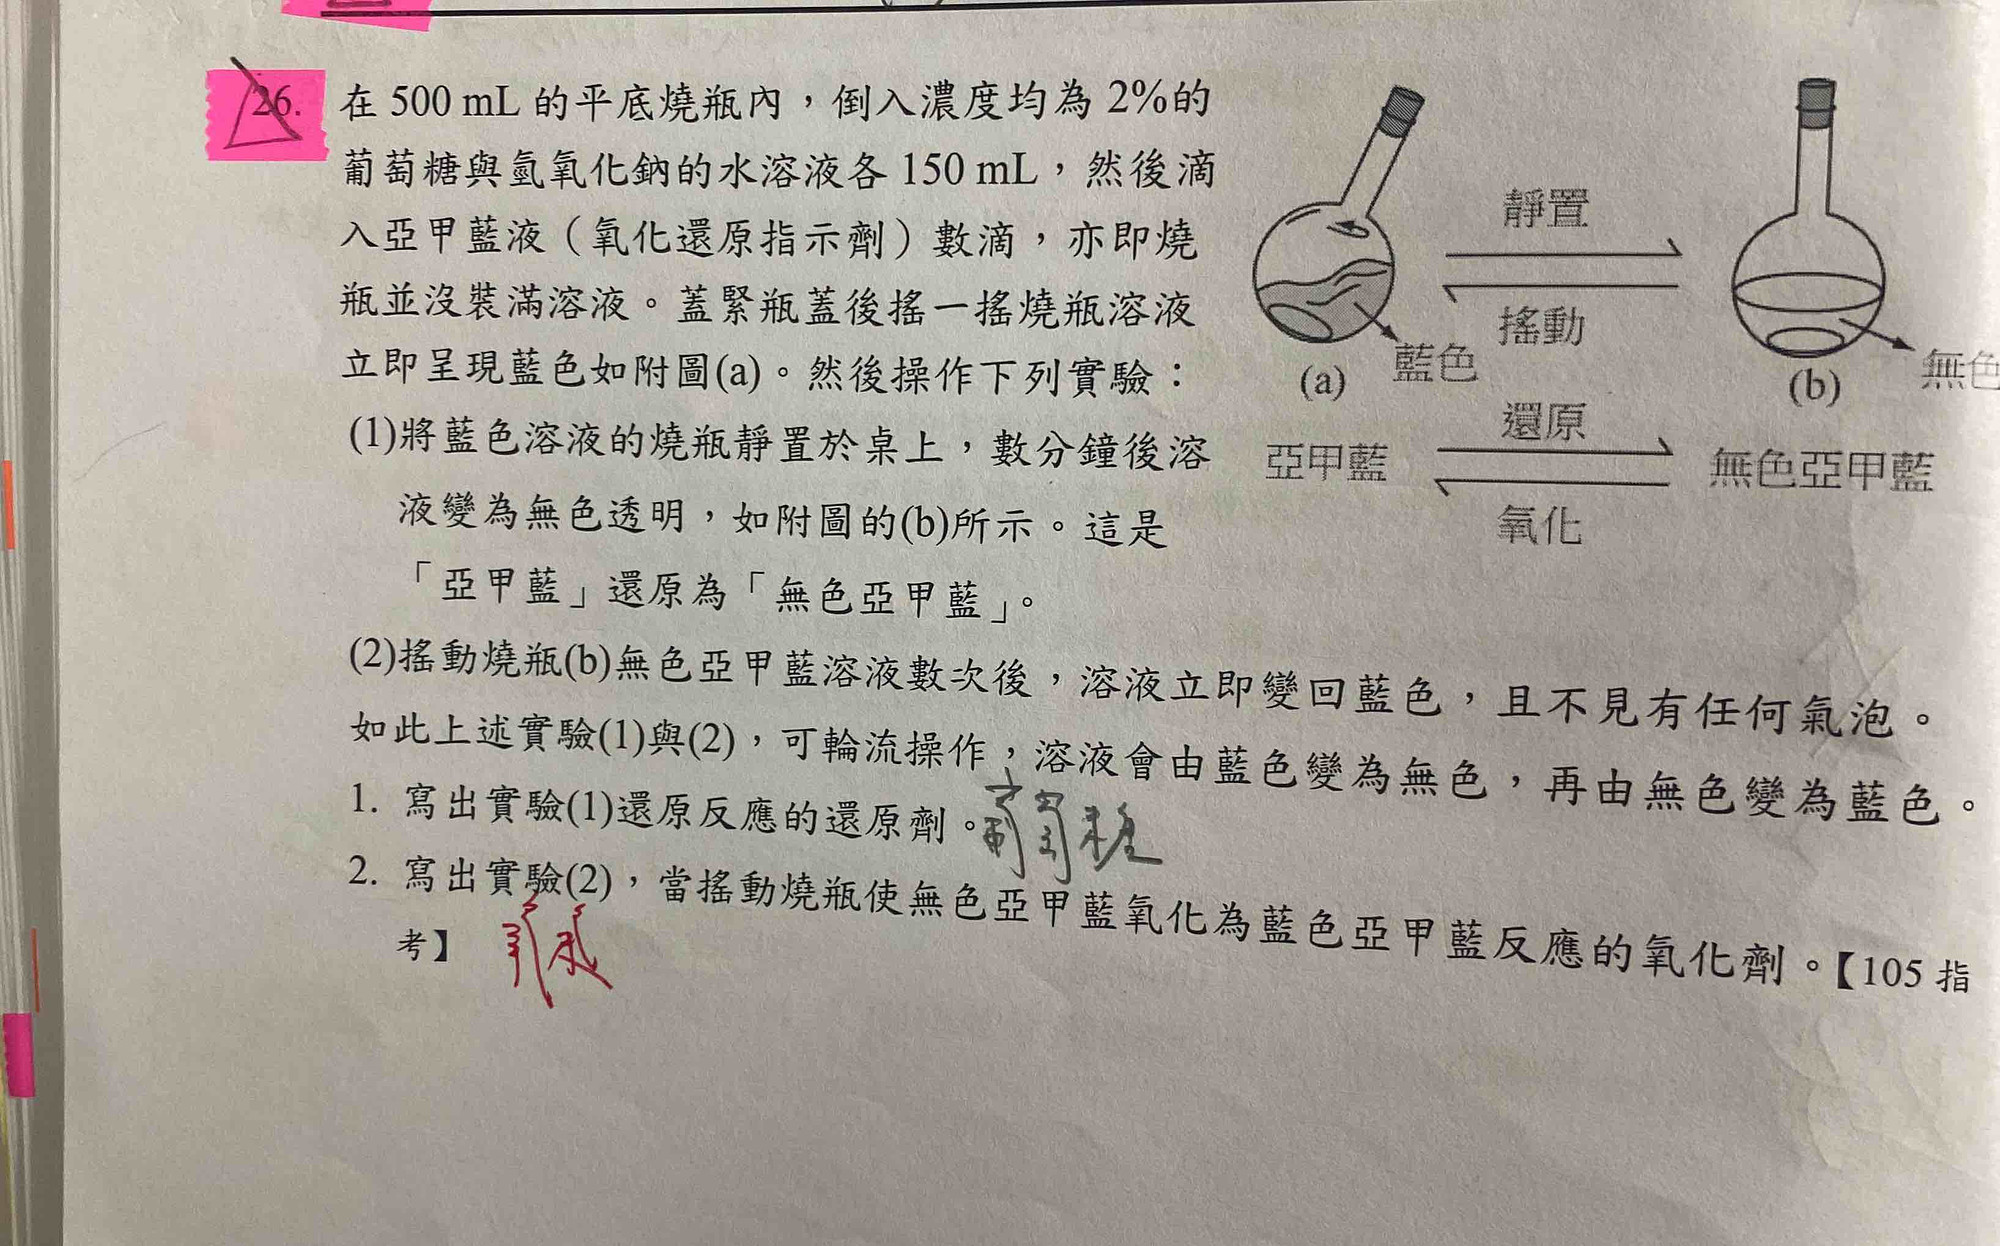 26. 在 500 mL 的平底燒瓶內，倒入濃度均為 2%的
葡萄糖與氫氧化鈉的水溶液各 150 mL，然後滴
入亞甲藍液（氧化還原指示劑）數滴，亦即燒
瓶並沒裝滿溶液。蓋緊瓶蓋後搖一搖燒瓶溶液
立即呈現藍色如附圖(a)。然後操作下列實驗：
(1)將藍色溶液的燒瓶靜置於桌上，數分鐘後溶
液變為無色透明，如附圖的(b)所示。這是
「亞甲藍」還原為「無色亞甲藍」。
靜置
搖動
藍色
無色
(a)
(b)
還原
亞甲藍
無色亞甲藍
氧化
(2)搖動燒瓶(b)無色亞甲藍溶液數次後，溶液立即變回藍色，且不見有任何氣泡。
如此上述實驗(1)與(2)，可輪流操作，溶液會由藍色變為無色，再由無色變為藍色。
1. 寫出實驗(1)還原反應的還原劑。葡萄糖
2. 寫出實驗(2)，當搖動燒瓶使無色亞甲藍氧化為藍色亞甲藍反應的氧化劑。【105 指
考】